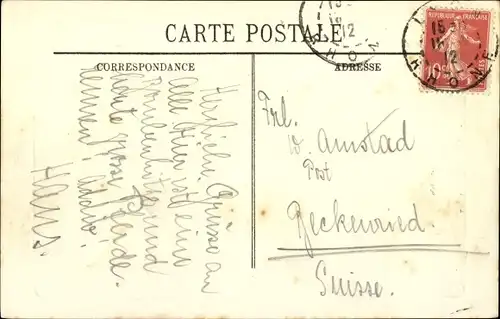 CARTE POSTALE
CORRESPONDANCE
ADRESSE
RÉPUBLIQUE FRANÇAISE
15
12
RHONE
Herzliche Grüsse an
alle. Hier ist eine
und
heute grosse
rennen. Addio!
Hans.
Frl.
W. Amstad
Post
Beckenried.
Suisse.